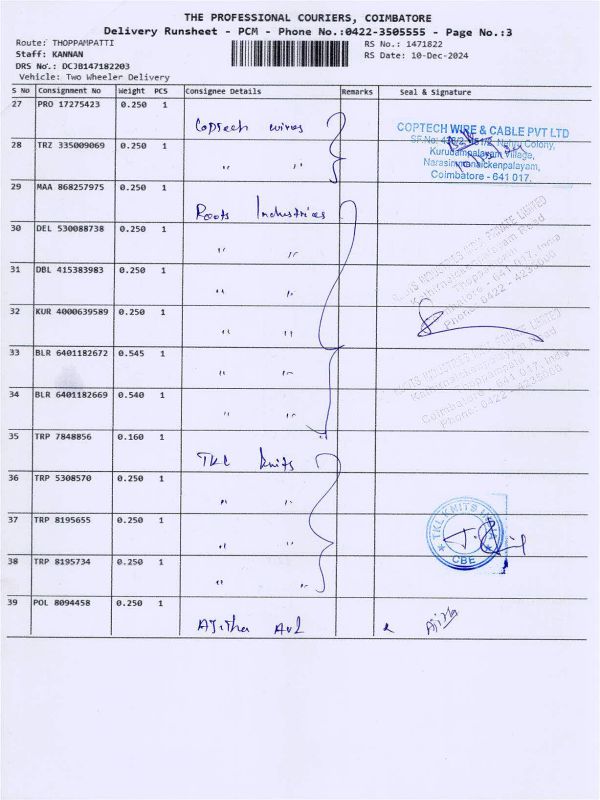 THE PROFESSIONAL COURIERS, COIMBATORE
Delivery Runsheet - PCM - Phone No.:0422-3505555 - Page No.:3
Route: THOPPAMPATTI RS No.: 1471822
Staff: KANNAN RS Date: 10-Dec-2024
DRS No.: DCJB147182203
Vehicle: Two Wheeler Delivery
S No Consignment No Weight PCS Consignee Details Remarks Seal & Signature
27 PRO 17275423 0.250 1
Coptech wires
COPTECH WIRE & CABLE PVT LTD
28 TRZ 335009069 0.250 1
" "
Nehru Colony,
Kurudampalayam Village,
Narasimmanaickenpalayam,
Coimbatore - 641 017.
29 MAA 868257975 0.250 1
Roots Industries
30 DEL 530088738 0.250 1
" "
31 DBL 415383983 0.250 1
" "
INDUSTRIES INDIA PRIVATE LIMITED
Thoppampatti
Coimbatore - 641 017. India
Phone: 0422 - 4230600
32 KUR 4000639589 0.250 1
" "
33 BLR 6401182672 0.545 1
" "
34 BLR 6401182669 0.540 1
" "
35 TRP 7848856 0.160 1
TKL knits
36 TRP 5308570 0.250 1
" "
37 TRP 8195655 0.250 1
" "
TKL KNITS
CBE
38 TRP 8195734 0.250 1
" "
39 POL 8094458 0.250 1
Ajitha